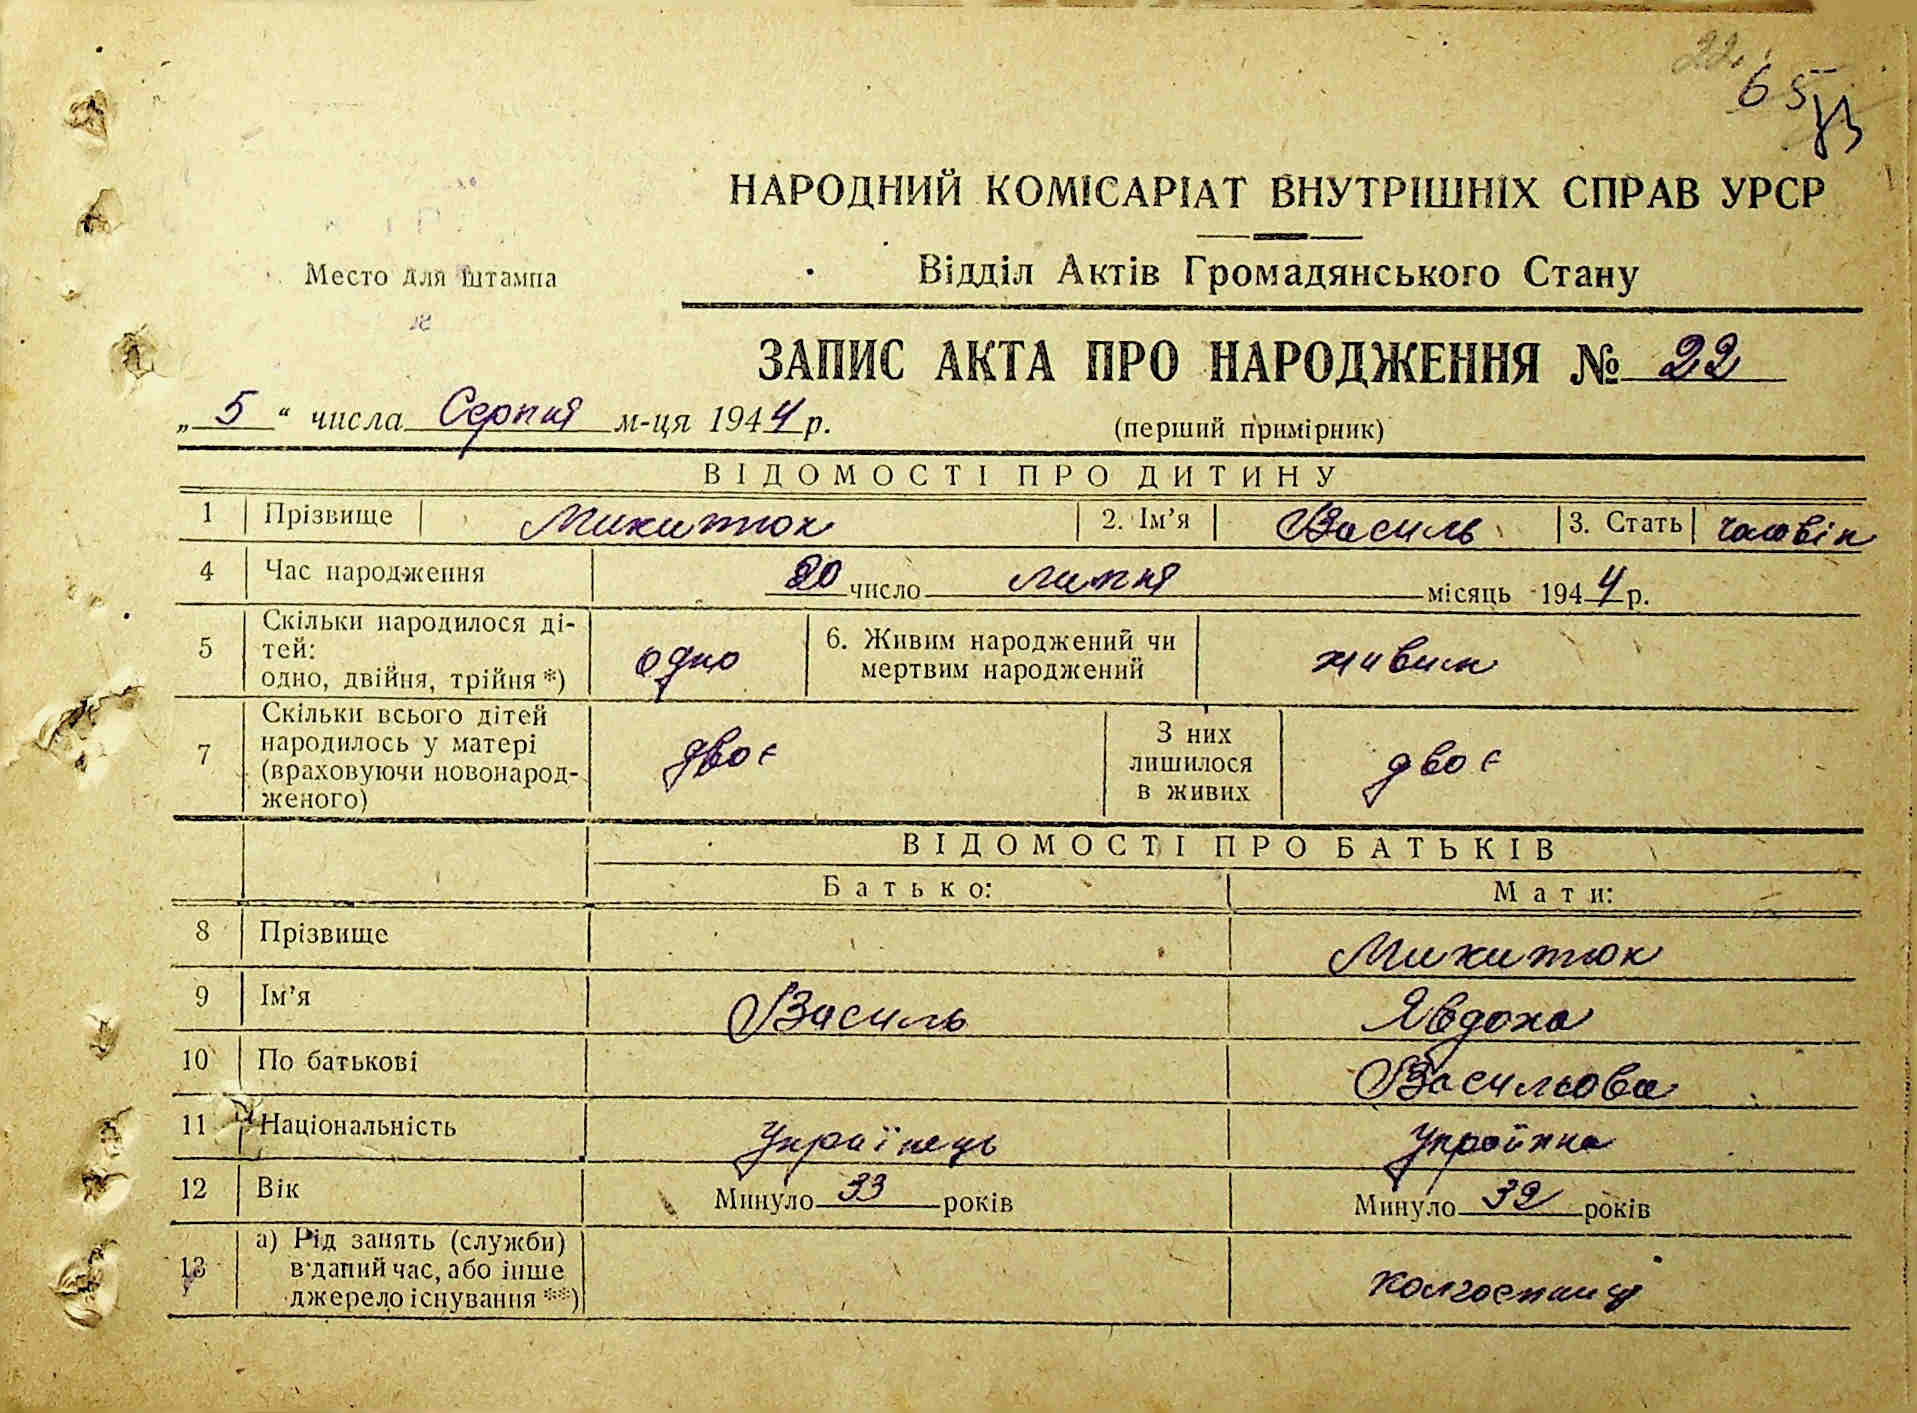 22.
65
НАРОДНИЙ КОМІСАРІАТ ВНУТРІШНІХ СПРАВ УРСР
Место для штампа
Відділ Актів Громадянського Стану
ЗАПИС АКТА ПРО НАРОДЖЕННЯ № 22
„ 5 “ числа Серпня м-ця 1944 р.
(перший примірник)
ВІДОМОСТІ ПРО ДИТИНУ
1 Прізвище Микитюк 2. Ім’я Василь 3. Стать чоловік
4 Час народження 20 число липня місяць 1944 р.
5 Скільки народилося ді-
тей:
одно, двійня, трійня *) одно 6. Живим народжений чи
мертвим народжений живим
7 Скільки всього дітей
народилось у матері
(враховуючи новонарод-
женого) двоє З них
лишилося
в живих двоє
ВІДОМОСТІ ПРО БАТЬКІВ
Батько: Мати:
8 Прізвище Микитюк
9 Ім’я Василь Явдоха
10 По батькові Васильова
11 Національність Українець Українка
12 Вік Минуло 33 років Минуло 32 років
13 а) Рід занять (служби)
в даний час, або інше
джерело існування **) колгоспниця